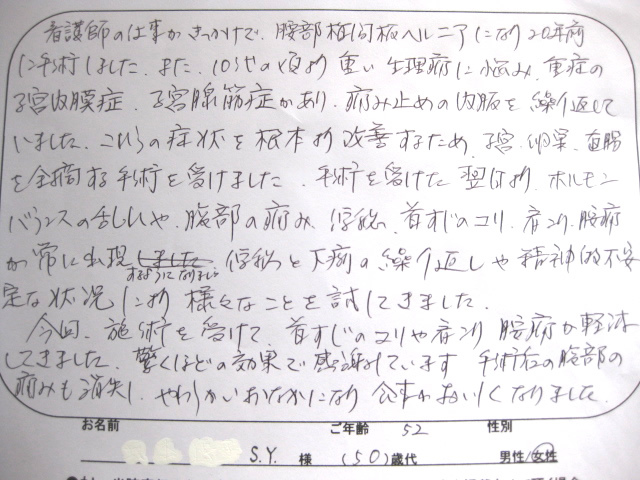 看護師の仕事がきっかけで、腰部椎間板ヘルニアになり20年前
に手術しました。また、10代の頃より重い生理痛に悩み、重症の
子宮内膜症、子宮腺筋症があり、痛み止めの内服を繰り返して
いました。これらの症状を根本より改善するため、子宮、卵巣、直腸
を全摘する手術を受けました。手術を受けた翌日より、ホルモン
バランスの乱れや、腹部の痛み、便秘、首すじのコリ、肩コリ、腰痛
が常に出現しました
するようになりました
便秘と下痢の繰り返しや精神的不安
定な状況により様々なことを試してきました。
今回、施術を受けて、首すじのコリや肩コリ、腰痛が軽減
してきました。驚くほどの効果で感謝しています。手術后の腹部の
痛みも消失し、やわらかいおなかになり、食事がおいしくなりました。
お名前 ご年齢 52 性別
S.Y. 様 (50)歳代 男性/女性